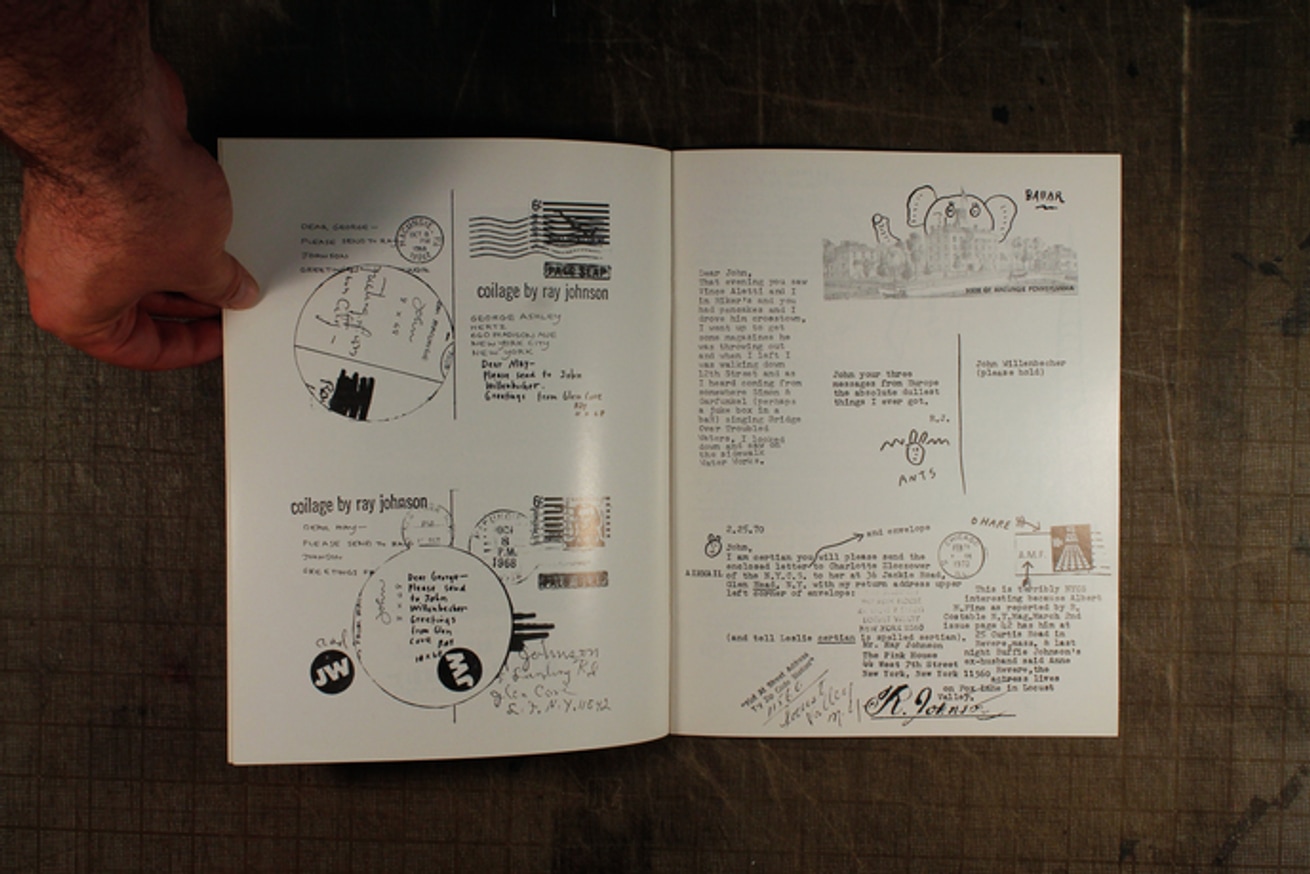 DEAR GEORGE—
PLEASE SEND TO RA
JOHNSON
GREETING
MACUNGIE, PA
OCT 8
PM
1968
John
6¢
PALO SEAP
collage by ray johnson
GEORGE ASHLEY
HERTZ
660 MADISON AVE
NEW YORK CITY
NEW YORK
Dear May—
Please send to John
Willenbecher.
Greetings from Glen Cove
Ray
collage by ray johnson
DEAR MAY—
PLEASE SEND TO RA
JOHNSON
GREETINGS F
OCT
8
P.M.
1968
6¢
John
Dear George—
Please send
to John
Willenbecher
Greetings
from Glen
Cove Ray
JW
JW
Johnson
Glen Cove
L. I. N.Y. 11542
BABAR
VIEW OF MACUNGIE PENNSYLVANIA
Dear John,
That evening you saw
Vince Aletti and I
in Riker's and you
had pancakes and I
drove him crosstown,
I went up to get
some magazines he
was throwing out
and when I left I
was walking down
12th Street and as
I heard coming from
somewhere Simon &
Garfunkel (perhaps
a juke box in a
bar) singing Bridge
Over Troubled
Waters, I looked
down and saw on
the sidewalk
Water Works.
John your three
messages from Europe
the absolute dullest
things I ever got.
R.J.
ANTS
John Willenbecher
(please hold)
2.25.70
and envelope
John,
I am certian you will please send the
enclosed letter to Charlotte Zloczower
of the N.Y.C.S. to her at 36 Jackie Road,
Glen Head, N.Y. with my return address upper
left corner of envelope:
AIRMAIL
(and tell Leslie certian is spelled sertian).
Mr. Ray Johnson
The Pink House
44 West 7th Street
New York, New York 11560
"Not At Street Address
11560
Locust
Valley
N.Y.
R. Johnso
CHICAGO
1970
OHARE
A.M.F.
This is terribly NYCS
interesting because Albert
M.Fine as reported by R.
Costable N.Y.Mag.March 2nd
issue page 42 has him at
25 Curtis Road in
Revere,mass. & last
night Suffie Johnson's
ex-husband said Anne
Revere,the
actress lives
on Fox-Lane in Locust
Valley.